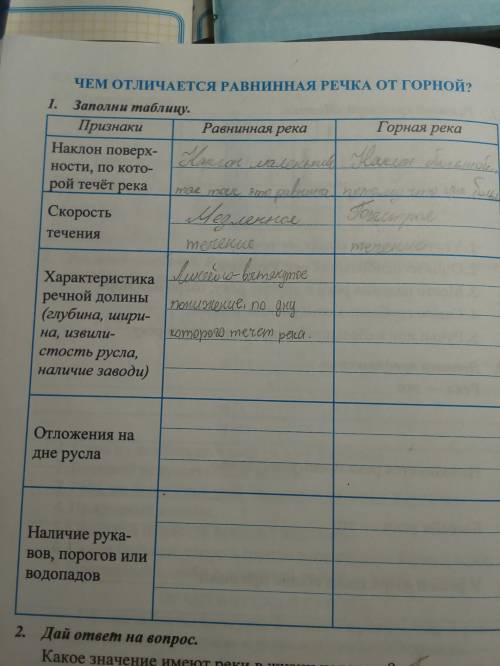 ЧЕМ ОТЛИЧАЕТСЯ РАВНИННАЯ РЕЧКА ОТ ГОРНОЙ?
1. Заполни таблицу.
Признаки Равнинная река Горная река
Наклон поверх-
ности, по кото-
рой течёт река
Наклон маленький Наклон большой,
так как это равнина потому что
Скорость
течения
Медленное
течение
течение
Характеристика
речной долины
(глубина, шири-
на, извили-
стость русла,
наличие заводи)
Линейно-вытянутое
понижение, по дну
которого течет река.
Отложения на
дне русла
Наличие рука-
вов, порогов или
водопадов
2. Дай ответ на вопрос.
Какое значение имеют реки в